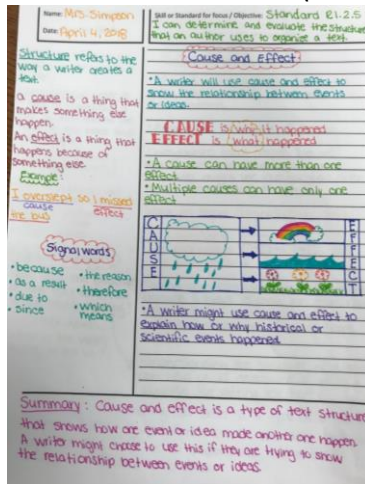 Name: Mrs. Simpson
Date: April 4, 2018
Skill or Standard for Focus / Objective: Standard R1.2.5
I can determine and evaluate the structure
that an author uses to organize a text.
Structure refers to the
way a writer creates a
text.
a cause is a thing that
makes something else
happen.
An effect is a thing that
happens because of
something else.
Example:
I overslept so I missed
cause effect
the bus
Signal words
• because
• as a result
• due to
• since
• the reason
• therefore
• which
means
Cause and Effect
• A writer will use cause and effect to
show the relationship between events
or ideas.
CAUSE is why it happened
EFFECT is what happened
• A cause can have more than one
effect
• Multiple causes can have only one
effect
CAUSE
EFFECT
• A writer might use cause and effect to
explain how or why historical or
scientific events happened.
Summary: Cause and effect is a type of text structure
that shows how one event or idea made another one happen.
A writer might choose to use this if they are trying to show
the relationship between events or ideas.